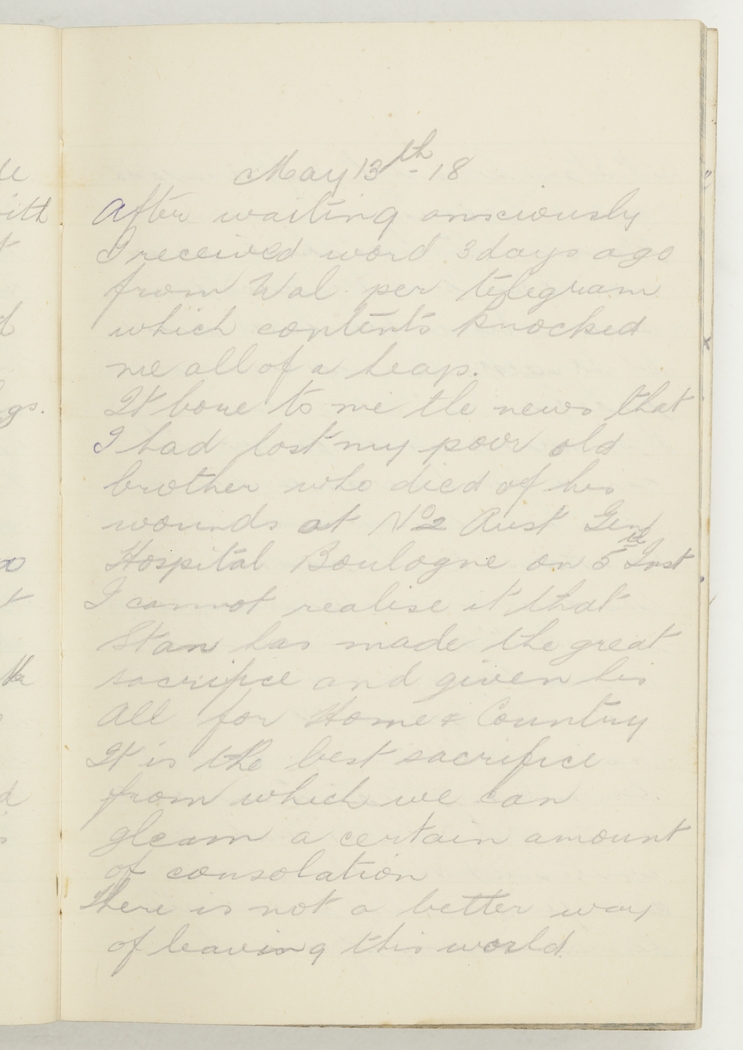 May 13th - 18
After waiting anxiously
I received word 3 days ago
from Wal per telegram
which contents knocked
me all of a heap.
It bore to me the news that
I had lost my poor old
brother who died of his
wounds at No 2 Aust Genl
Hospital Boulogne on 5th Inst
I cannot realise it that
Stan has made the great
sacrifice and given his
all for Home & Country
It is the best sacrifice
from which we can
gleam a certain amount
of consolation
There is not a better way
of leaving this world